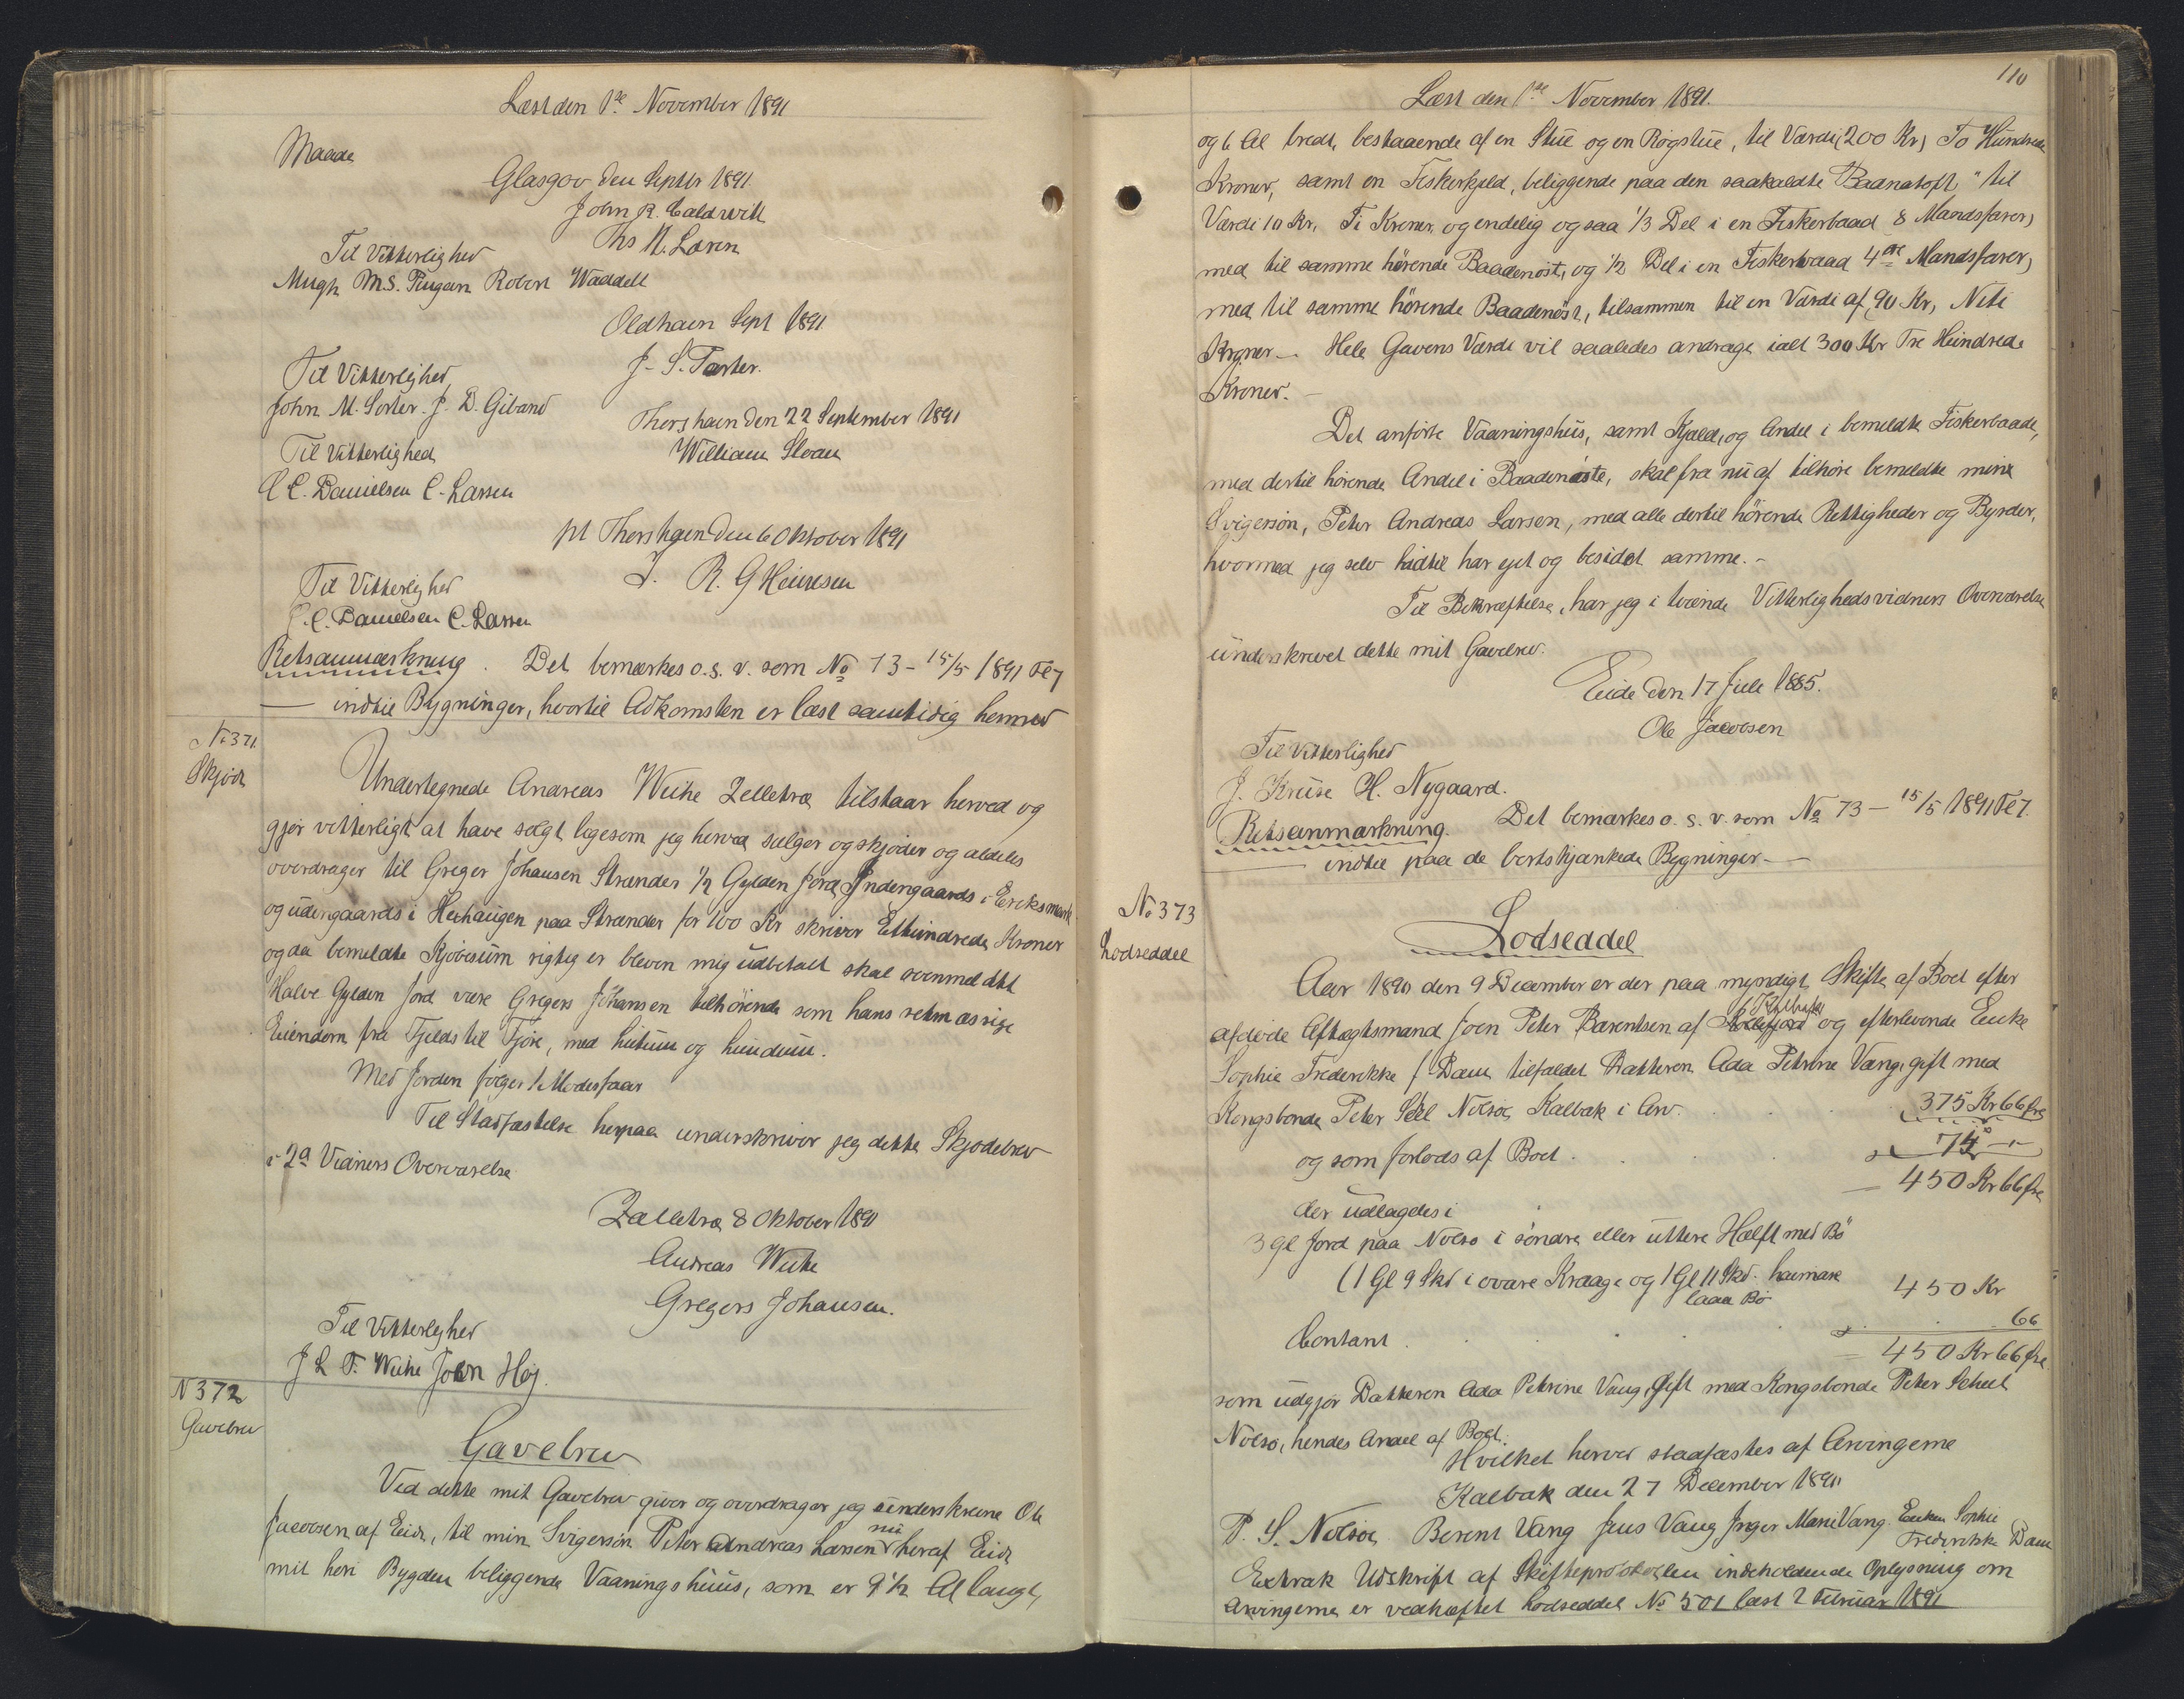 Læst den 1ste November 1891
Maade
Glasgov den Septbr 1891
John R. Caldwell
Til Vitterlighed Ths M. Laren
Hugh M S. Robert Waddell
Oldhavn Sept 1891
Til Vitterlighed J. S. Tarter.
John M. J. D. Giband
Thorshavn den 22 September 1891
Til Vitterlighed William Sloan
C C. Danielsen C. Larsen
pt Thorshavn den 6 Oktober 1891
Til Vitterlighed J. R. G Heinesen
C. C. Danielsen C. Larsen
Retsanmærkning. Det bemærkes o. s. v. som No 73 - 15/5 1891
indtil Bygninger, hvortil Adkomsten er læst samtidig hermed
No 371
Skjøde
Undertegnede Andreas Weihe Zelletræ tilstaar herved og
gjør vitterligt at have solgt ligesom jeg herved sælger og skjøder og aldeles
overdrager til Greger Johansen Strander 1/2 Gylden Jord Indengaards i Eriksmark
og udengaards i Heihaugen paa Strander for 100 Kr skriver Ethundrede Kroner
og da bemeldte Kjøbesum rigtig er bleven mig udbetalt skal ovenmeldte
Halve Gylden Jord være Gregers Johansen tilhørende som hans retmæssige
Eiendom fra Fjelds til Fjøre, med hutum og hundum.
Med Jorden følger 1 Modesfaar
Til Stadfæstelse herpaa underskriver jeg dette Skjødebrev
i 2a Vidners Overværelse
Zelletræ 8 Oktober 1891
Andreas Weihe
Gregers Johansen.
Til Vitterlighed
J L F. Weihe Joen Høj.
N 372
Gavebrev
Gavebrev
Ved dette mit Gavebrev giver og overdrager jeg underskrevne Ole
Jacobsen af Eide, til min Svigersøn Peter Andreas Larsen nu heraf Eide
mit her i Bygden beliggende Vaaningshuus, som er 9 1/2 Al langt,
110
Læst den 1ste November 1891.
og 6 Al bredt, bestaaende af en Stue og en Røgstue, til Værdi (200 Kr) To Hundrede
Kroner, samt en Fiskerkjeld, beliggende paa den saakaldte "Baanatoft" til
Værdi 10 Kr, Ti Kroner, og endelig ogsaa 1/3 Del i en Fiskerbaad 8 Mandsfarer,
med til samme hørende Baadenøst, og 1/2 Del i en Fiskerbaad 4de Mandsfarer,
med til samme hørende Baadenøst, tilsammen til en Værdi af, 90 Kr, Niti
Kroner - Hele Gavens Værdi vil saaledes andrage ialt 300 Kr Tre Hundrede
Kroner. -
Det anførte Vaaningshus, samt Kjeld, og Andel i bemeldte Fiskerbaade,
med dertil hørende Andel i Baadenøste, skal fra nu af tilhøre bemeldte mine
Svigersøn, Peter Andreas Larsen, med alle dertil hørende Rettigheder og Byrder,
hvormed jeg selv hidtil har ejet og besiddet samme. -
Til Bekræftelse, har jeg i tvende Vitterlighedsvidners Overværelse
underskrevet dette mit Gavebrev.
Eide den 17 Juli 1885.
Ole Jacobsen
Til Vitterlighed
J. Kruse H. Nygaard.
Retsanmærkning. Det bemærkes o. s. v. som No 73 - 15/5 1891
indtil paa de bortskjænkede Bygninger -
No 373
Lodseddel
Lodseddel
Aar 1890 den 9 December er der paa myndigt Skifte af Boet efter
afdøde Aftægtsmand Joen Peter Barentsen af og efterlevende Enke
Sophie Frederikke f Dam tilfaldet Datteren Ada Petrine Vang, gift med
Kongsbonde Peter Nolsøe Kalbak i Arv. 375 Kr 66 Øre
og som forlods af Boet . . . 75 " - "
450 Kr 66 Øre
der udlagdes i
3 Gl Jord paa Nolsø i søndre eller uttere Hælft med Bø
(1 Gl 9 Skd i ovare Kraage og 1 Gl 11 Skd. haimare
laaa Bø 450 Kr
Contant . . . . 66
450 Kr 66 Øre
som udgjør Datteren Ada Petrine Vang, gift med Kongsbonde Peter Scheel
Nolsø, hendes Andel af Boet.
Hvilket herved stadfæstes af Arvingerne
Kalbak den 27 December 1890
P. S. Nolsøe Berent Vang Jens Vang Inger Marie Vang Enken Sophie
Frederikke Dam
Extrak Udskrift af Skifteprotokollen indeholdende Oplysning om
Arvingerne er vedhæftet Lodseddel No 501 læst 2 Februar 1891